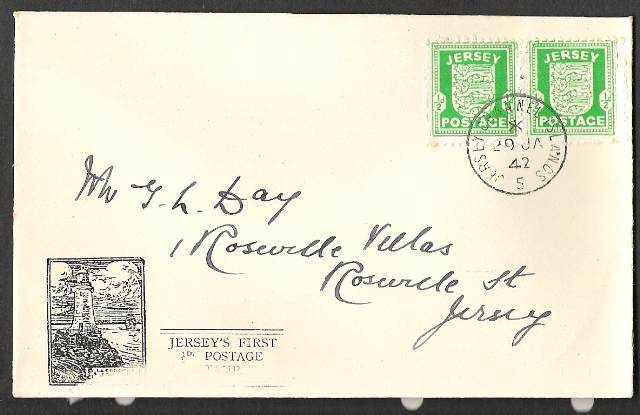 JERSEY
½d
POSTAGE
JERSEY
½d
POSTAGE
JERSEY CHANNEL ISLANDS
29 JA
42
5
Mr G. L. Day
1 Roseville Villas
Roseville St
Jersey
JERSEY'S FIRST
½D. POSTAGE